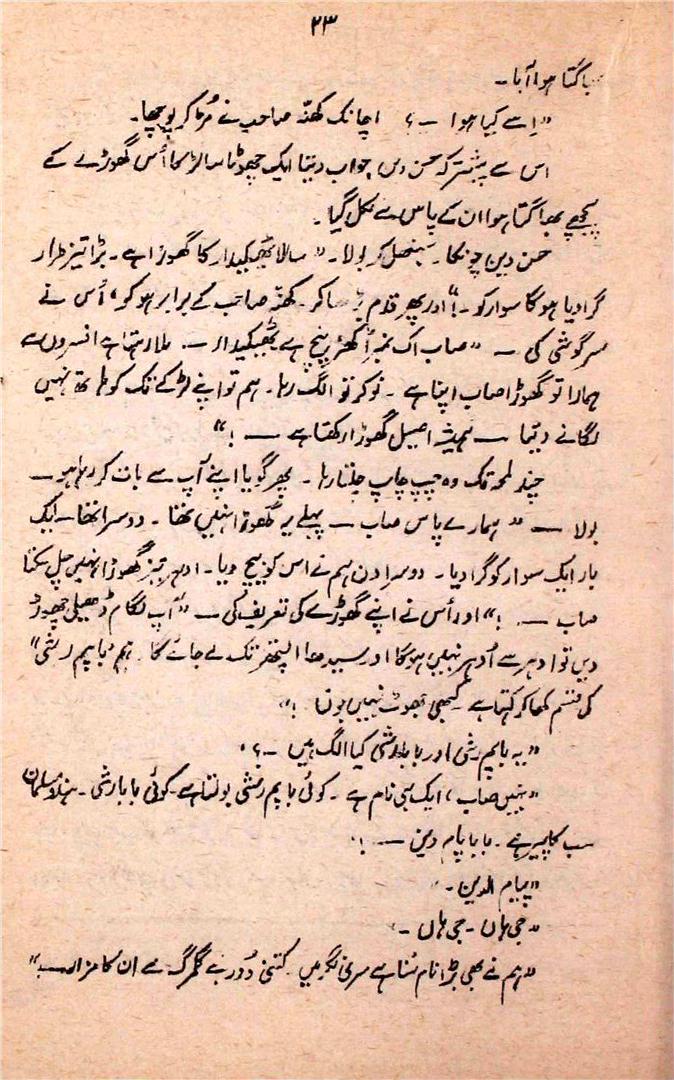 ۲۳
بھاگتا ہوا آیا۔
"اِسے کیا ہوا ــ؟ اچانک کھنّہ صاحب نے مُڑ کر پوچھا۔
اس سے پیشتر کہ حسن دین جواب دیتا ایک چھوٹا سا لڑکا اُس گھوڑے کے
پیچھے بھاگتا ہوا ان کے پاس سے نکل گیا۔
حسن دین چونکا۔ سنبھل کر بولا۔ "سالا ٹھیکیدار کا گھوڑا ہے۔ بڑا تیز طرار
گرا دیا ہوگا سوار کو۔!" اور پھر قدم بڑھا کر۔ کھنّہ صاحب کے برابر ہو کر، اُس نے
سرگوشی کی ــ "صاب اک نمبر اُچکّا ہے ٹھیکیدار ــ ملا رہتا ہے افسروں سے
ہمارا تو گھوڑا صاب اپنا ہے۔ نوکر تو الگ رہا۔ ہم تو اپنے لڑکے تک کو ہاتھ نہیں
لگانے دیتا ــ ہمیشہ اصیل گھوڑا رکھتا ہے ــ !"
چند لمحہ تک وہ چپ چاپ چلتا رہا۔ پھر گویا اپنے آپ سے بات کر رہا ہو ــ
بولا ــ "ہمارے پاس صاب ــ پہلے یہ گھوڑا نہیں تھا۔ دوسرا تھا۔ ایک
بار ایک سوار کو گرا دیا۔ دوسرا دن ہم نے اس کو بیچ دیا۔ ادہر تیز گھوڑا نہیں چل سکتا
صاب ــ !" اور اُس نے اپنے گھوڑے کی تعریف کی ــ "آپ لگام ڈھیلی چھوڑ
دیں تو ادہر سے اُدہر نہیں ہوگا اور سیدھا اپتھر تک لے جائے گا۔ ہم 'باپم رشی'
کی قسم کھا کر کہتا ہے کبھی جھوٹ نہیں بولتا !"
"یہ باپم رشی اور بابا رشی کیا الگ ہیں ــ؟"
"نہیں صاب، ایک ہی نام ہے۔ کوئی باپم رشی بولتا ہے کوئی بابا رشی۔ ہندو مسلمان
سب کا پیر ہے۔ بابا پام دین ــ !"
"پیام الدین۔"
"جی ہاں۔ جی ہاں ــ"
"ہم نے بھی بڑا نام سُنا ہے سری نگر میں۔ کتنی دُور ہے گلمرگ سے ان کا مزار"